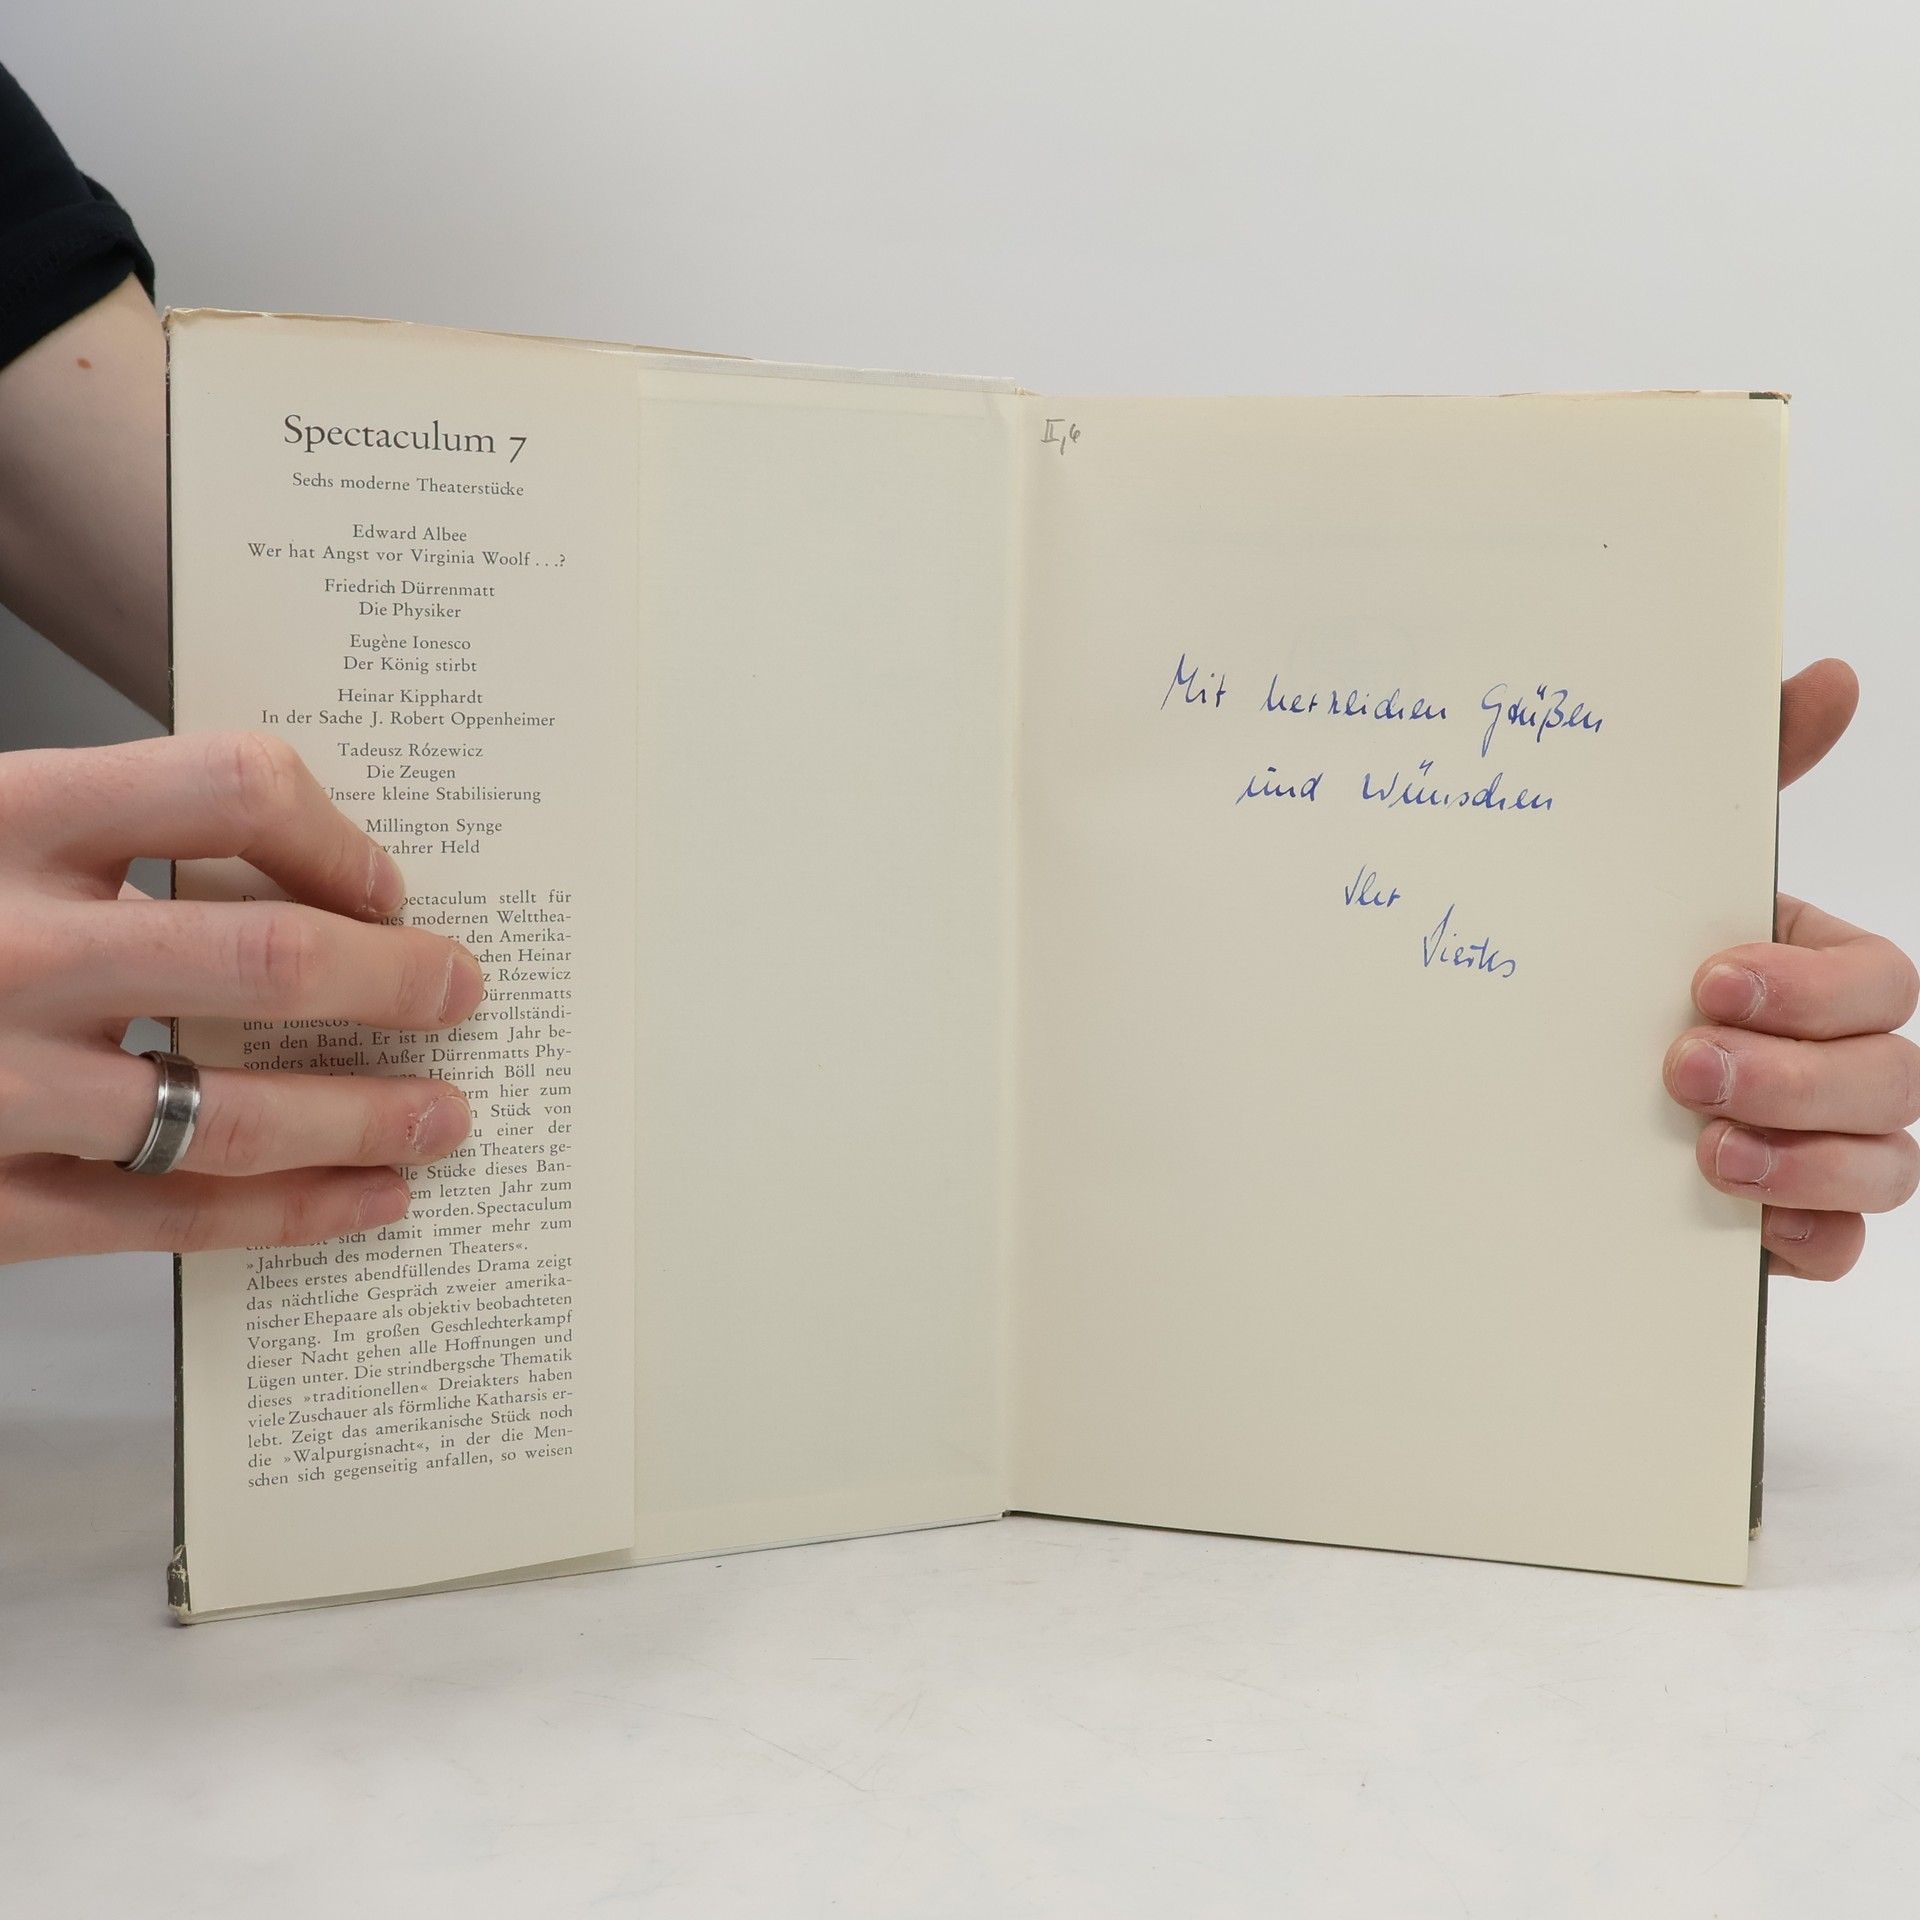 Spectaculum 7
Sechs moderne Theaterstücke
Edward Albee
Wer hat Angst vor Virginia Woolf . . .?
Friedrich Dürrenmatt
Die Physiker
Eugène Ionesco
Der König stirbt
Heinar Kipphardt
In der Sache J. Robert Oppenheimer
Tadeusz Rózewicz
Die Zeugen
Unsere kleine Stabilisierung
Millington Synge
wahrer Held
pectaculum stellt für
des modernen Weltthea-
den Amerika-
schen Heinar
z Rózewicz
Dürrenmatts
und Ionescos vervollständi-
gen den Band. Er ist in diesem Jahr be-
sonders aktuell. Außer Dürrenmatts Phy-
Heinrich Böll neu
orm hier zum
n Stück von
zu einer der
nen Theaters ge-
lle Stücke dieses Ban-
em letzten Jahr zum
t worden. Spectaculum
sich damit immer mehr zum
»Jahrbuch des modernen Theaters«.
Albees erstes abendfüllendes Drama zeigt
das nächtliche Gespräch zweier amerika-
nischer Ehepaare als objektiv beobachteten
Vorgang. Im großen Geschlechterkampf
dieser Nacht gehen alle Hoffnungen und
Lügen unter. Die strindbergsche Thematik
dieses »traditionellen« Dreiakters haben
viele Zuschauer als förmliche Katharsis er-
lebt. Zeigt das amerikanische Stück noch
die »Walpurgisnacht«, in der die Men-
schen sich gegenseitig anfallen, so weisen
II,6
Mit herzlichen Grüßen
und Wünschen